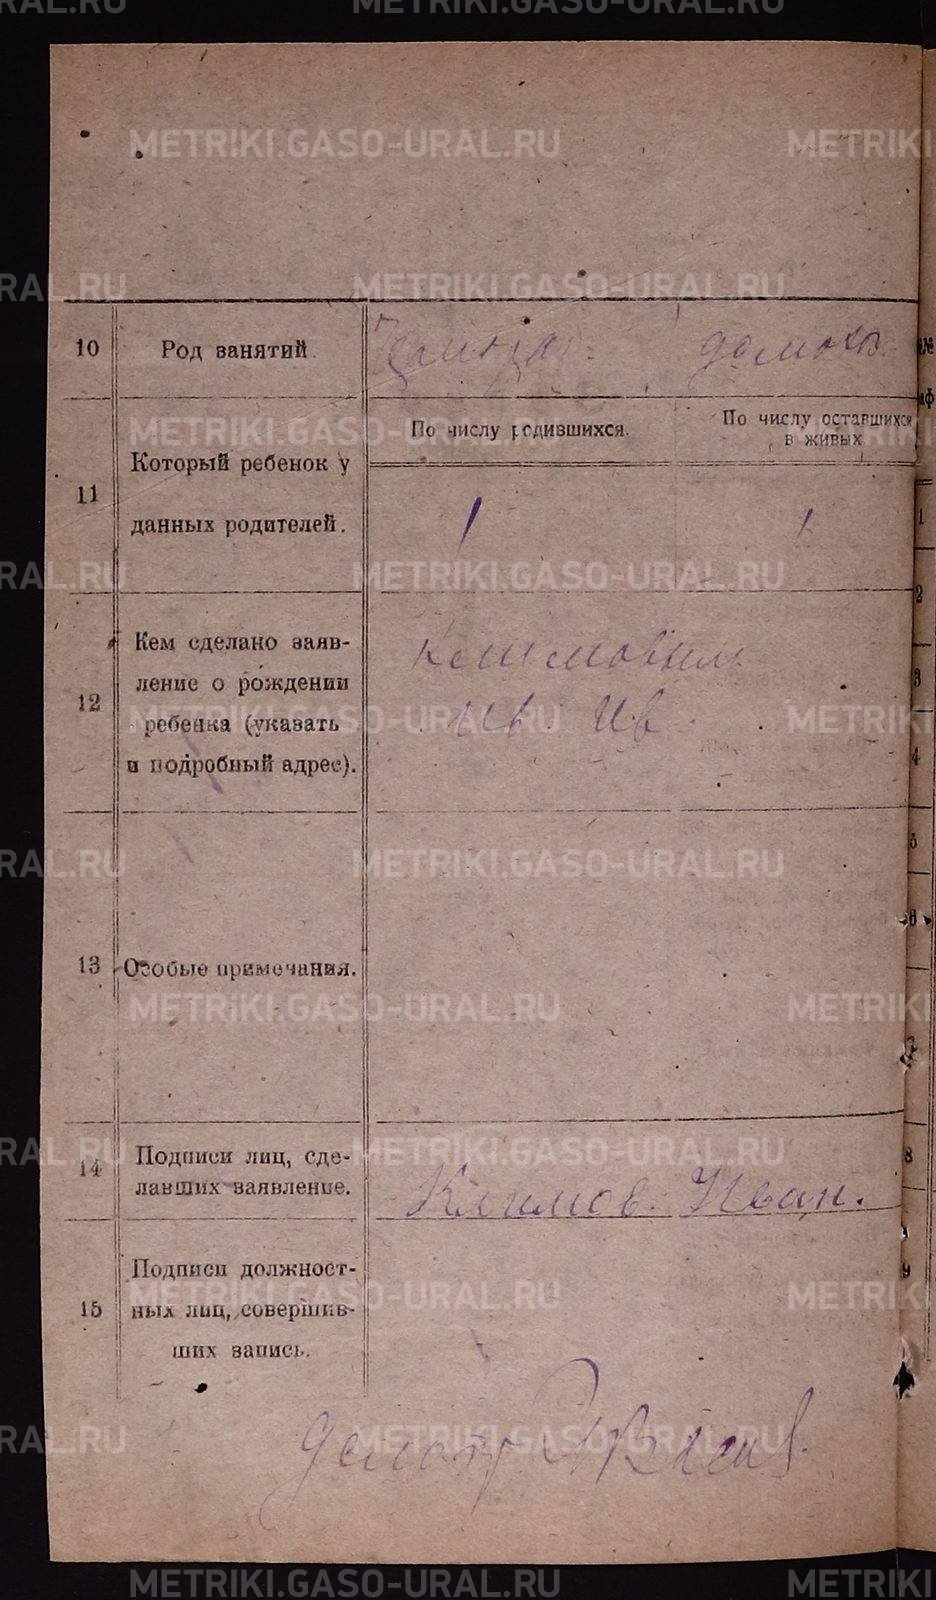 METRIKI.GASO-URAL.RU
10
Род занятий.
домохоз.
11
Который ребенок у
данных родителей.
По числу родившихся.
По числу оставшихся
в живых
1
1
12
Кем сделано заяв-
ление о рождении
ребенка (указать
и подробный адрес).
Климовым
Ив. Ив.
13
Особые примечания.
14
Подписи лиц, сде-
лавших заявление.
Климов. Иван.
15
Подписи должност-
ных лиц, совершив-
ших запись.
Делопр